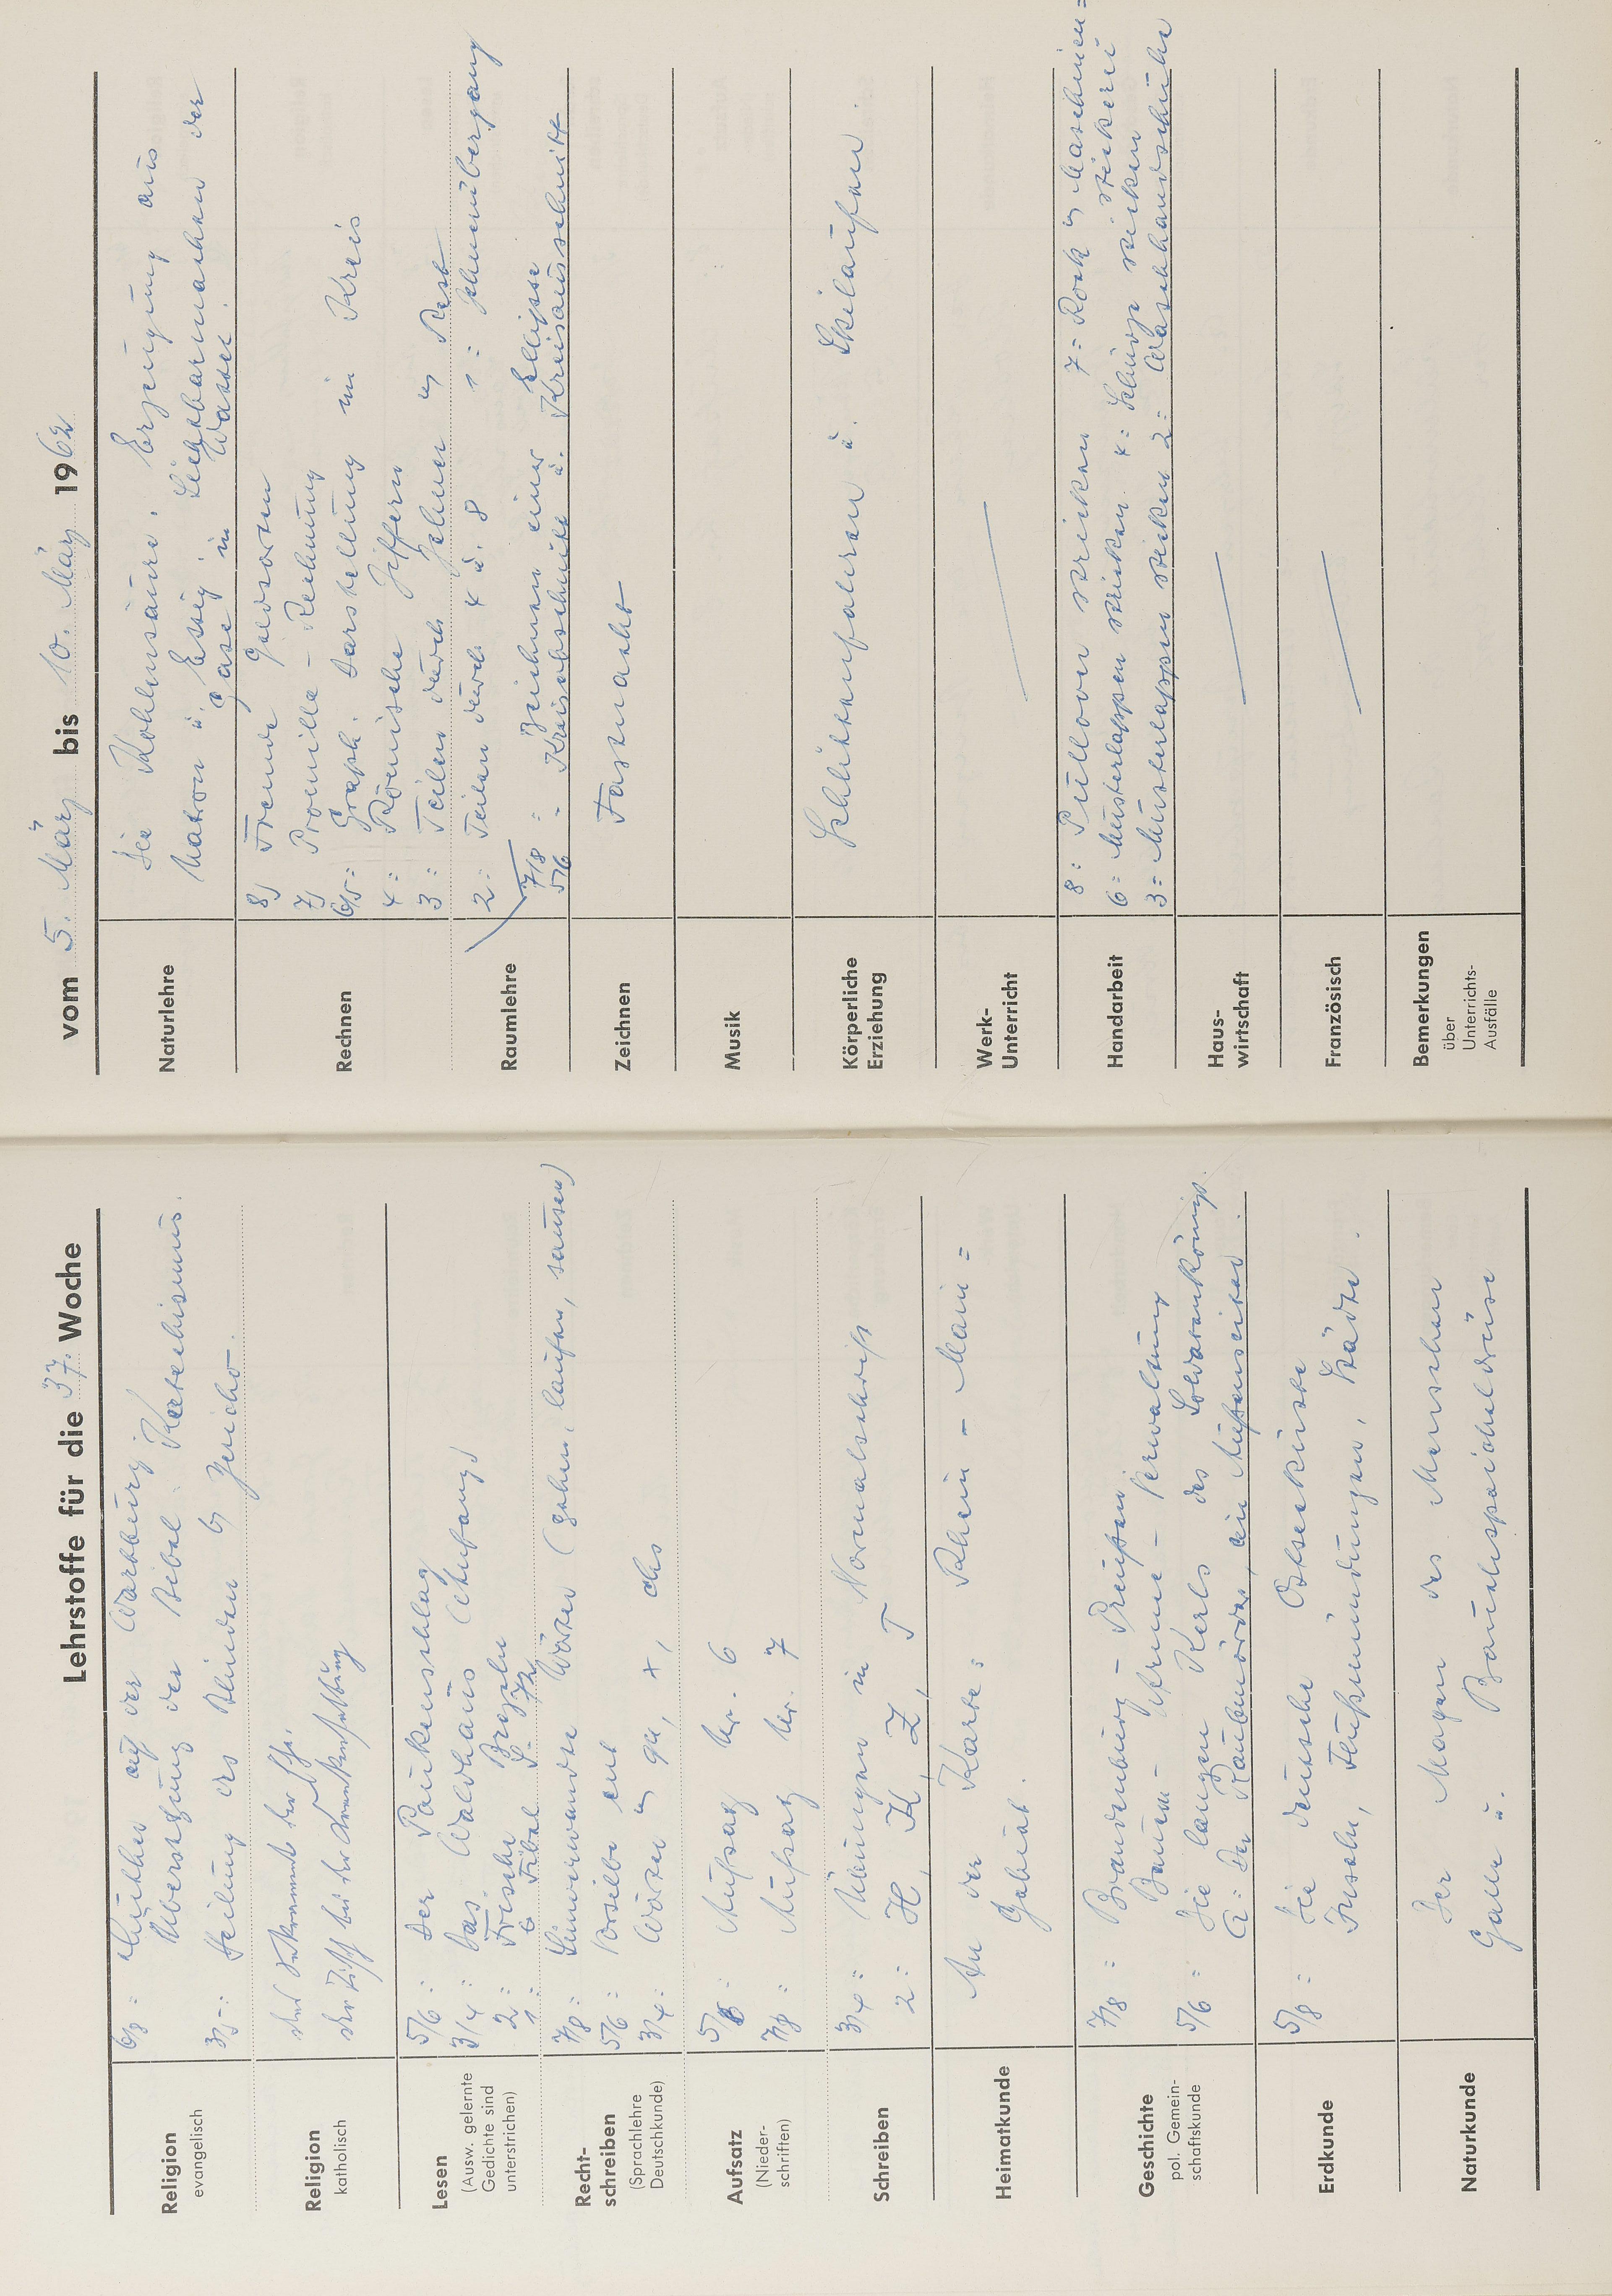 Lehrstoffe für die 37. Woche
Religion
evangelisch
6/8 = Luther auf der Wartburg
Übersetzung der Bibel. Katechismus.
3/5 = Heilung des Blinden b Jericho.
Religion
katholisch
Das Sakrament der Ehe.
bei der
Lesen
(Ausw. gelernte
Gedichte sind
unterstrichen)
5/6 = Der Paukenschlag
3/4 = Das Waldhaus (Anfang)
2 = Frische Brezeln
1 = Fibel S.
Recht-
schreiben
(Sprachlehre
Deutschkunde)
7/8 = Sinnverwandte Wörter (gehen, laufen, sausen)
5/6 = Vorsilbe ent
3/4 = Wörter m qu, x, chs
Aufsatz
(Nieder-
schriften)
5/6 = Aufsatz Nr. 6
7/8 = Aufsatz Nr. 7
Schreiben
3/4 = Übungen in Normalschrift
2 = H, K, Z, T
Heimatkunde
An der Karte: Rhein - Main =
Gebiet.
Geschichte
pol. Gemein-
schaftskunde
7/8 = Brandenburg - Preußen
Bauern - Armee - Verwaltung
5/6 = Die langen Kerls des Soldatenkönigs.
Der Räubmörder, ein Außenseiter.
Erdkunde
5/8 = Die deutsche Ostseeküste
Inseln, Flußmündungen, Städte.
Naturkunde
Der Magen des Menschen
Galle u. Bauchspeicheldrüse
vom 5. März bis 10. März 1962
Naturlehre
Die Kohlensäure. Erzeugung aus
Natron u. Essig. Sichtbarmachen der
Gase in Wasser.
Rechnen
8) Fremde Geldsorten
7) Promille - Rechnung
6/5 = Graph. Darstellung im Kreis
4 = Römische Ziffern
3 = Teilen durch Zehner m Rest
2 = Teilen durch 4 u. 8 1 = Zehnerübergang
Raumlehre
7/8 = Zeichnen einer Ellipse
5/6 = Kreisabschnitt u. Kreisausschnitt
Zeichnen
Fastnacht
Musik
Körperliche
Erziehung
Schlittenfahren u. Skilaufen.
Werk-
Unterricht
Handarbeit
8 = Pullover stricken 7 = Rock m Maschinen=
stickerei
6 = Musterlappen stricken 4 = Schürze sticken
3 = Musterlappen sticken 2 = Waschhandschuhe
Haus-
wirtschaft
Französisch
Bemerkungen
über
Unterrichts-
Ausfälle